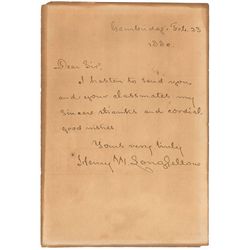 Cambridge. Feb. 23
1880.
Dear Sir,
I hasten to send you
and your classmates my
sincere thanks and cordial
good wishes.
Yours very truly
Henry W. Longfellow